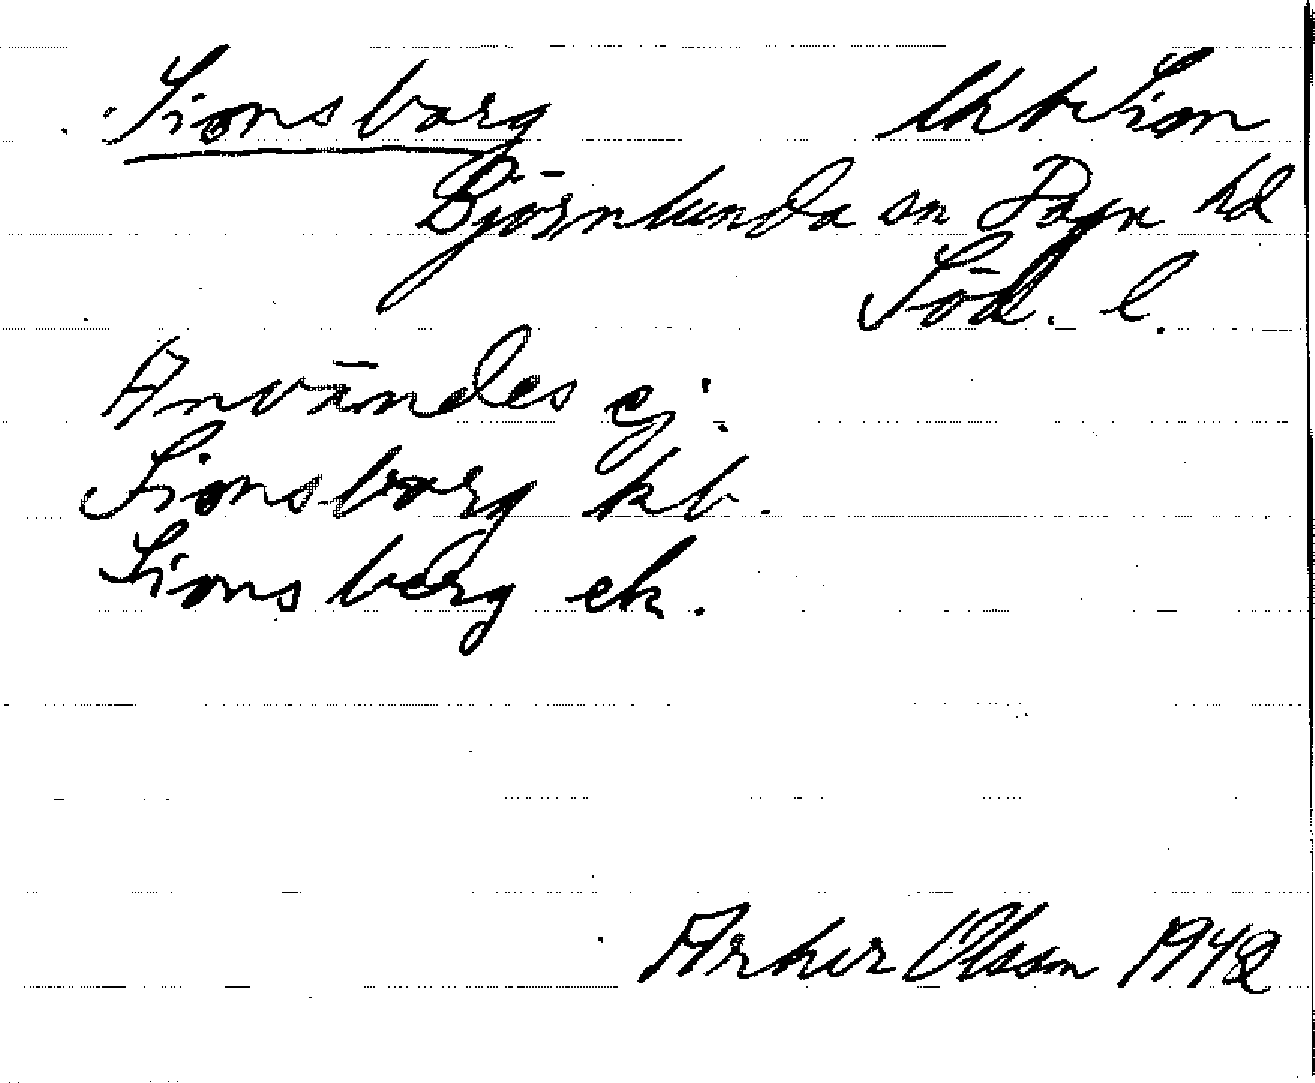 Sionsborg Sion
Björnlunda sn Daga hd
Söd. l.
Användes ej:
Sionsborg kb.
Sionsberg ek.
Arthur Olsson 1942